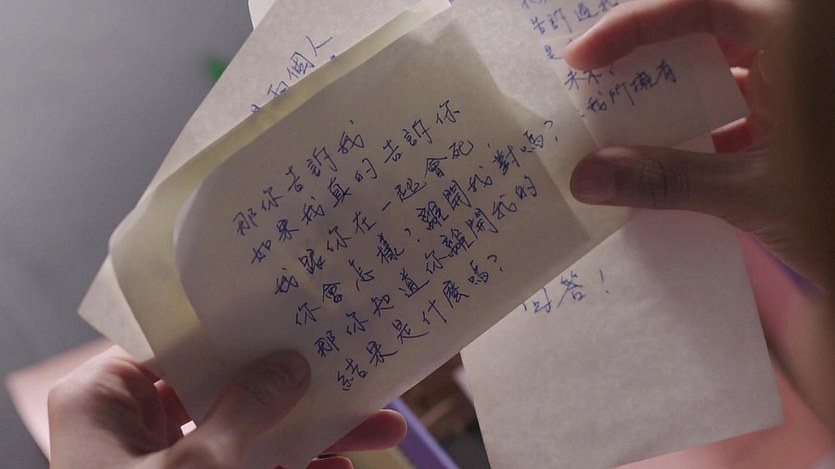 那你告訴我
如果我真的告訴你
我跟你在一起會死
你會怎樣，離開我對嗎？
那你知道你離開我的
結果是什麼嗎？
個人
告訴
是
未來？
我們擁有
答！